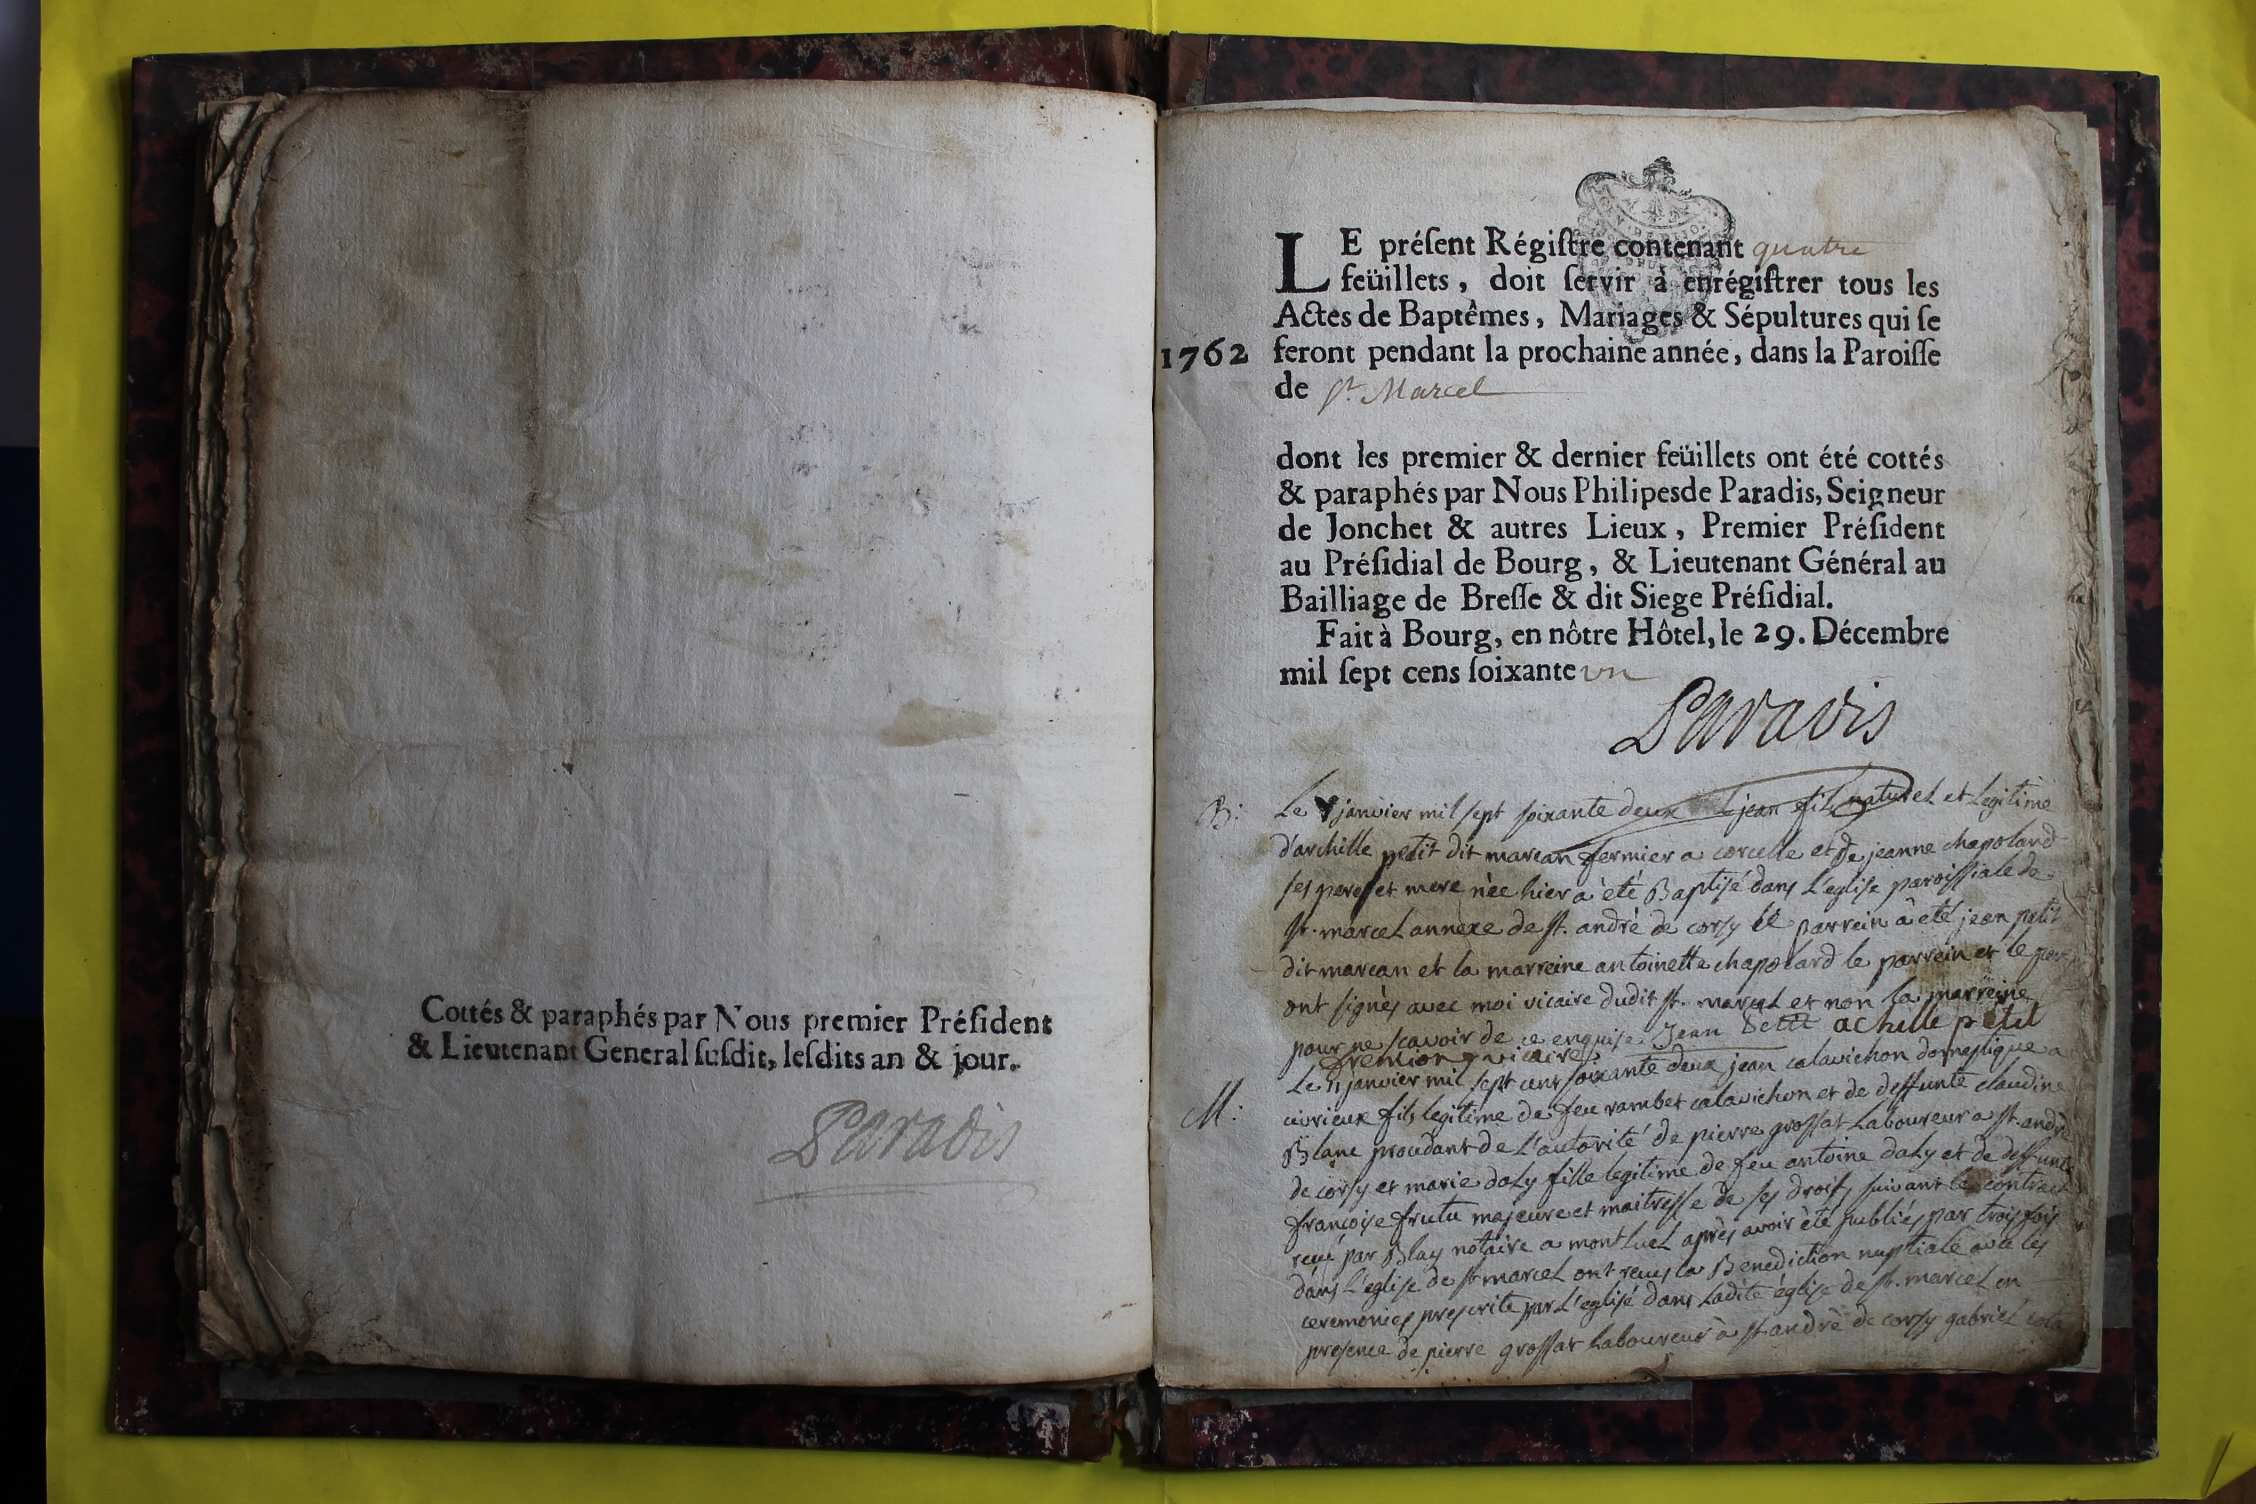 Cottés & paraphés par Nous premier Préſident
& Lieutenant General ſuſdit, leſdits an & jour.
Paradis
LE préſent Régiſtre contenant quatre
feüillets, doit ſervir à enrégiſtrer tous les
Actes de Baptêmes, Mariages & Sépultures qui ſe
1762 feront pendant la prochaine année, dans la Paroiſſe
de St. Marcel
dont les premier & dernier feüillets ont été cottés
& paraphés par Nous Philipes de Paradis, Seigneur
de Jonchet & autres Lieux, Premier Préſident
au Préſidial de Bourg, & Lieutenant Général au
Bailliage de Breſſe & dit Siege Préſidial.
Fait à Bourg, en nôtre Hôtel, le 29. Décembre
mil ſept cens ſoixante un
Paradis
B: Le janvier mil sept soixante deux jean fils naturel et legitime
d'archille petit dit marcan fermier a corcelle et de jeanne chapoland
ses pere et mere née hier a été Baptisé dans l'eglise paroissiale de
st. marcel annexe de st. andré de corsy le parrein a eté jean petit
dit marcan et la marreine antoinette chapolard le parrein et le pere
ont signés avec moi vicaire dudit st. marcel et non la marreine
pour ne scavoir de ce enquise. Jean Petit achille petit
vicaire
M: Le 11 janvier mil sept cent soixante deux jean calavichon domestique a
civrieux fils legitime de feu rambet calavichon et de deffunte claudine
Blanc procedant de l'autorité de pierre grossat Laboureur a st. andré
de corsy et marie daly fille legitime de feu antoine daly et de deffunte
françoise frutu majeure et maitresse de ses droits suivant le contract
reçu par Blay notaire a montluel après avoir été publiés par trois fois
dans l'eglise de st marcel ont reçus la Benediction nuptiale avec les
ceremonies prescrite par L'eglise dans Ladite église de st. marcel en
presence de pierre grossat Laboureur à st andré de corsy gabriel